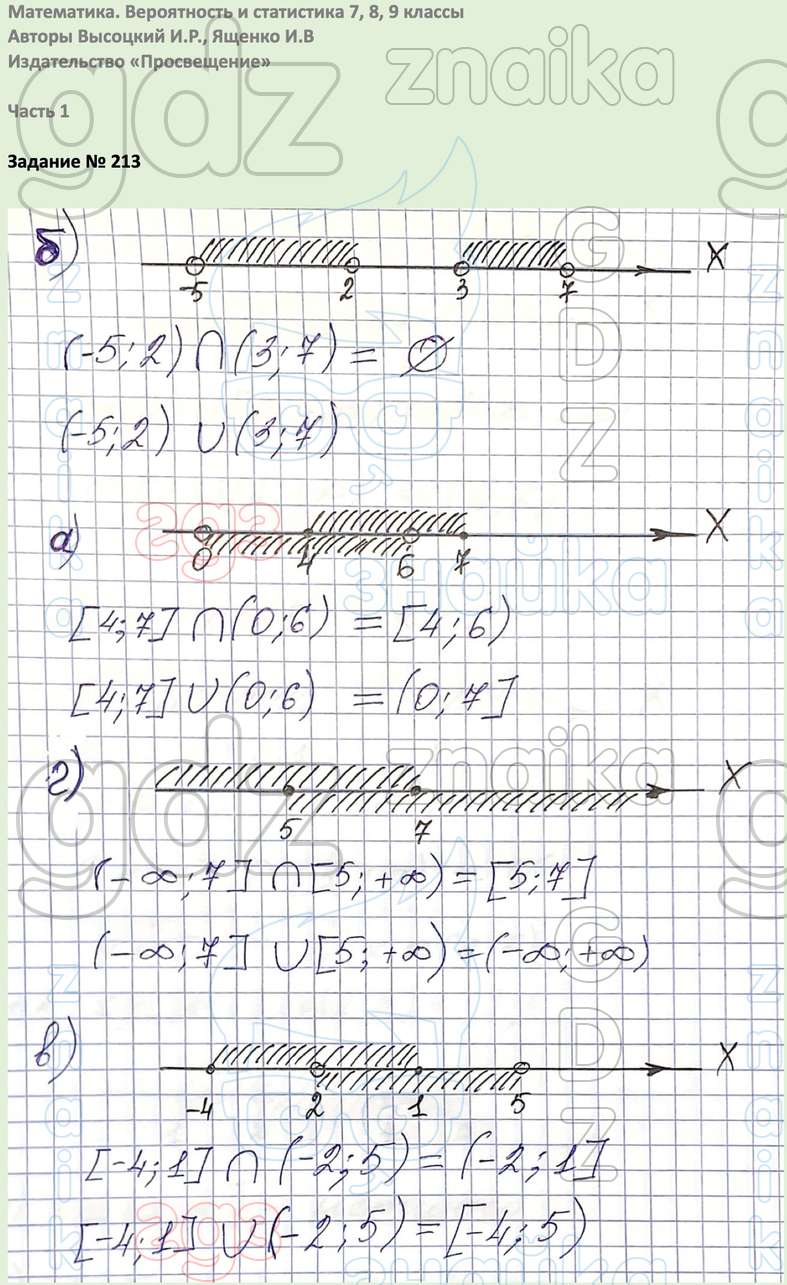 Математика. Вероятность и статистика 7, 8, 9 классы
Авторы Высоцкий И.Р., Ященко И.В
Издательство «Просвещение»
Часть 1
Задание № 213
gdz
znaika
GDZ
znaika
б)
-5 2 3 7 X
(-5;2)∩(3;7) = ∅
(-5;2) ∪(3;7)
згз
знайка
а)
0 4 6 7 X
[4;7]∩(0;6) =[4;6)
[4;7]∪(0;6) =(0;7]
gdz
znaika
г)
5 7 X
(-∞;7] ∩[5;+∞)=[5;7]
(-∞;7] ∪[5;+∞)=(-∞;+∞)
GDZ
znaika
в)
-4 2 1 5 X
[-4;1]∩(-2;5)=(-2;1]
[-4;1]∪(-2;5)=[-4;5)
згз
знайка